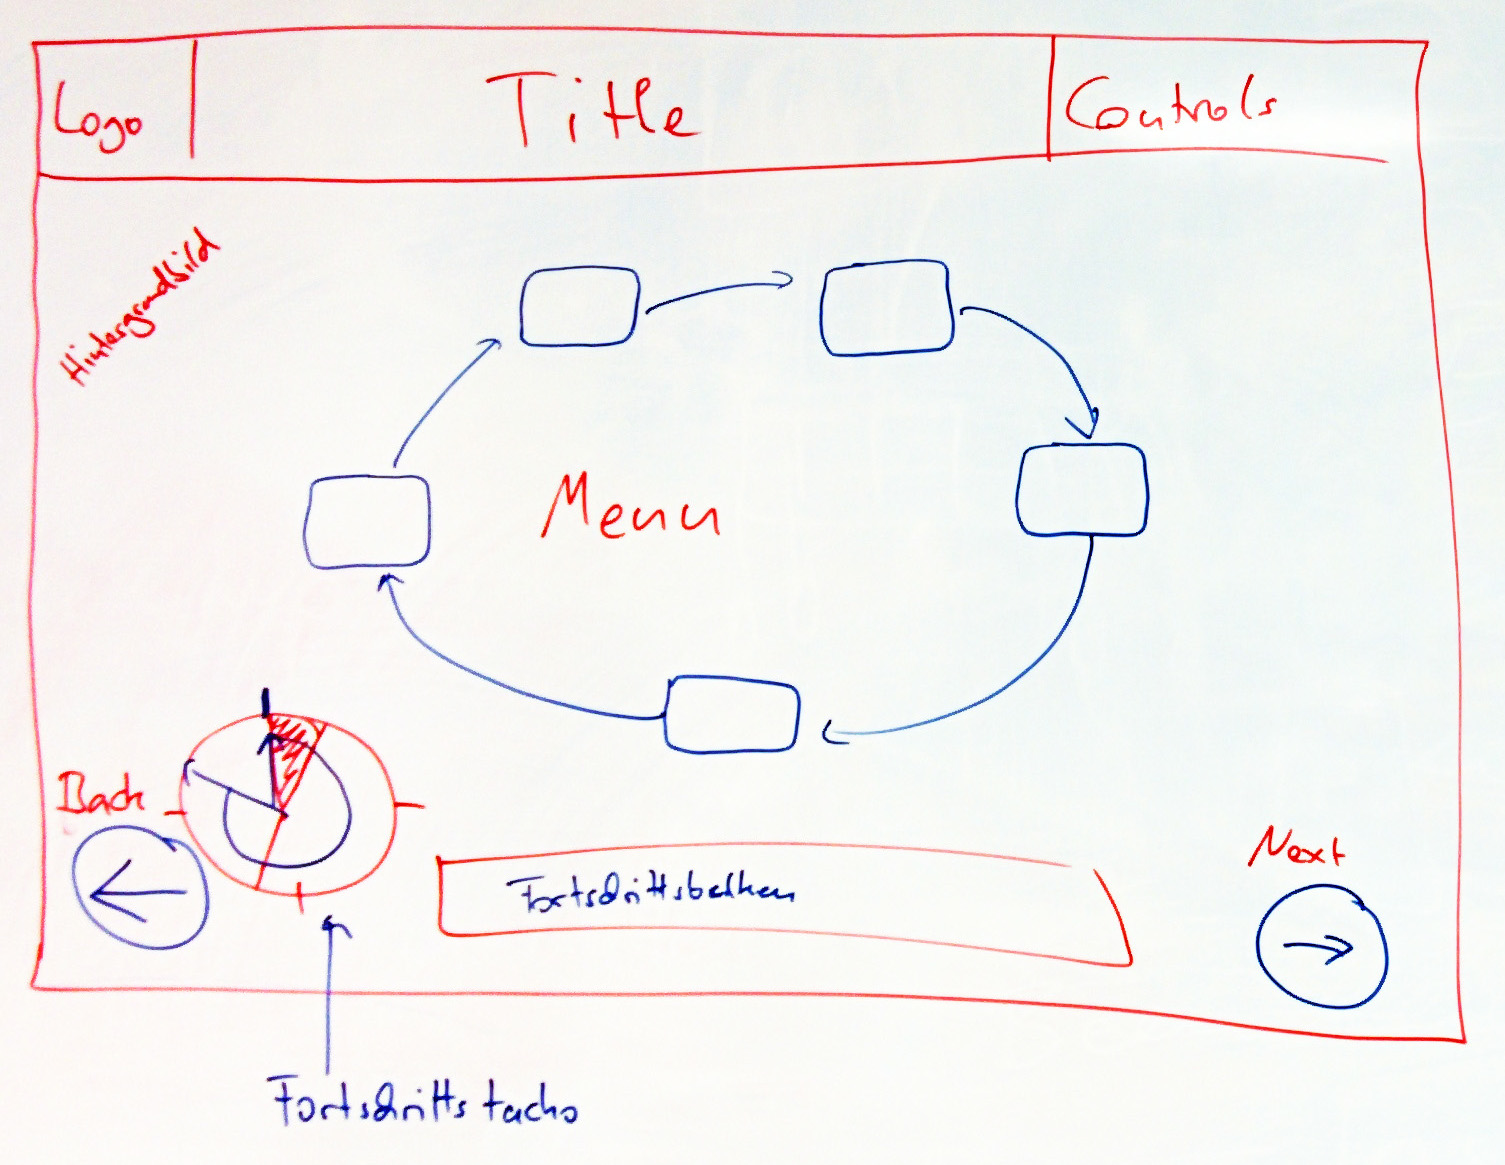 Logo
Title
Controls
Hintergrundbild
Menu
Back
Next
Fortschrittsbalken
Fortschrittstacho